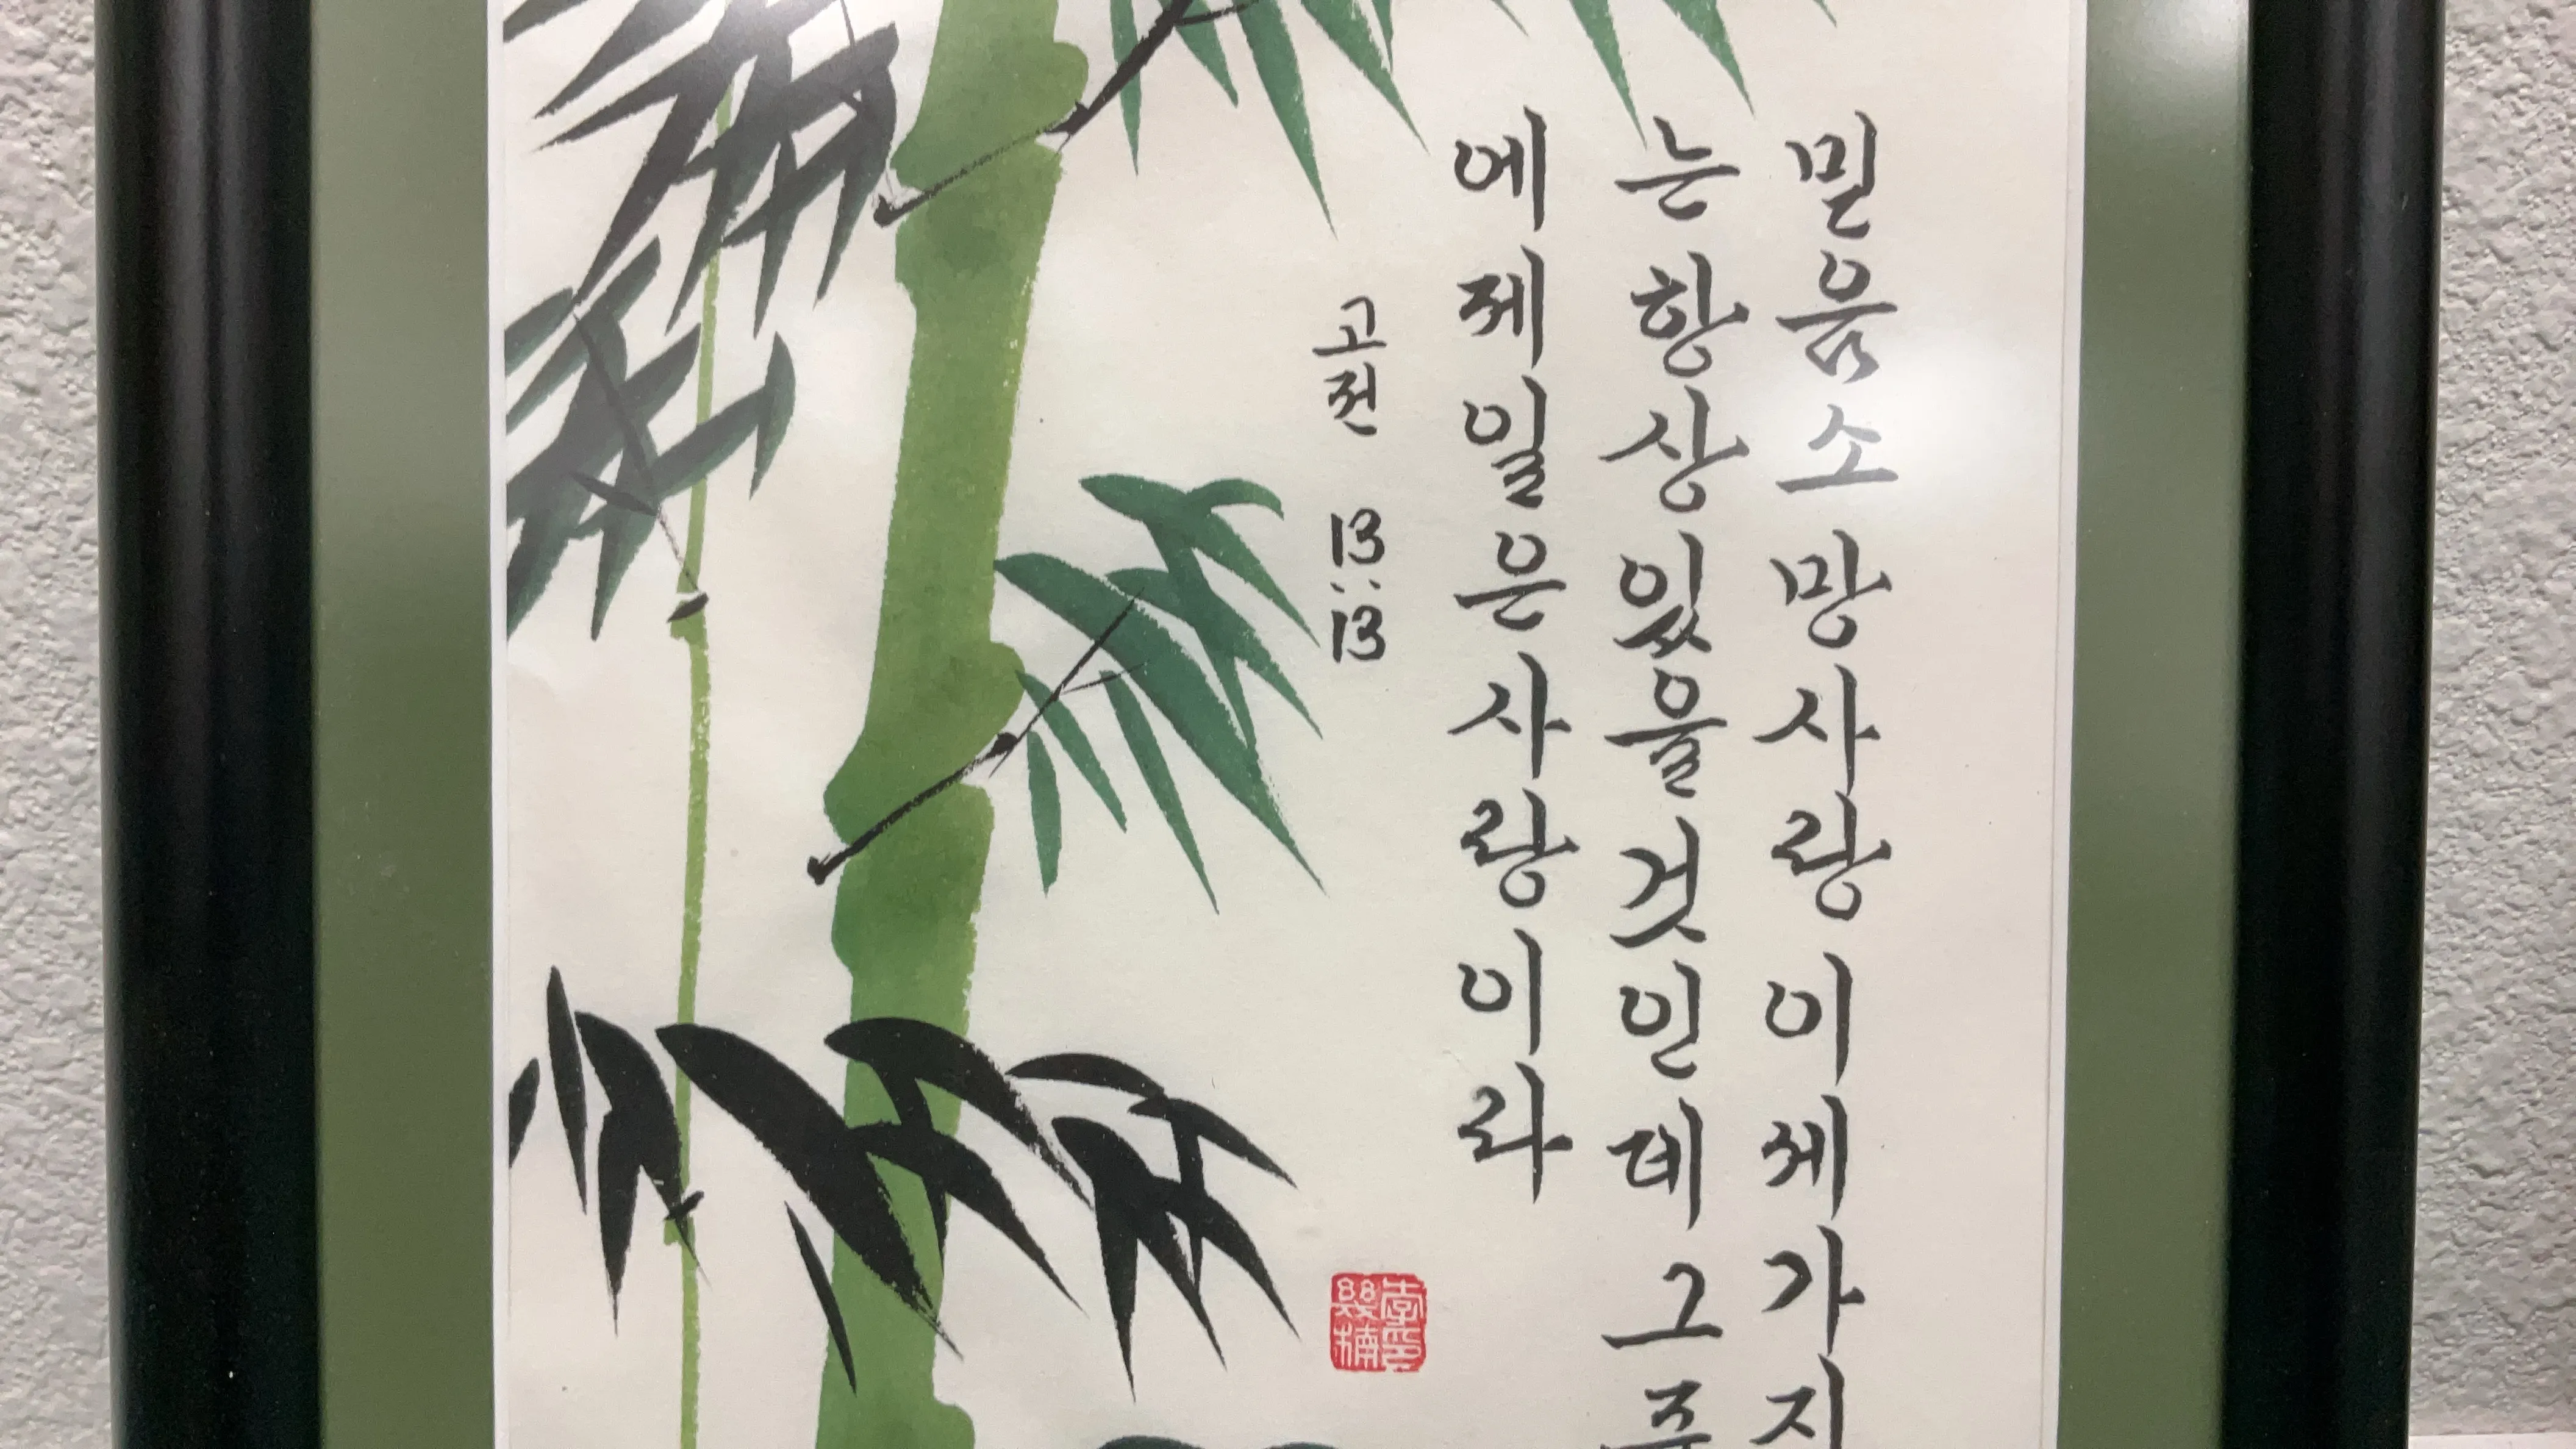 믿음소망사랑이세가지
는항상있을것인데그중
에제일은사랑이라
고전 13:13
李印
幾楠